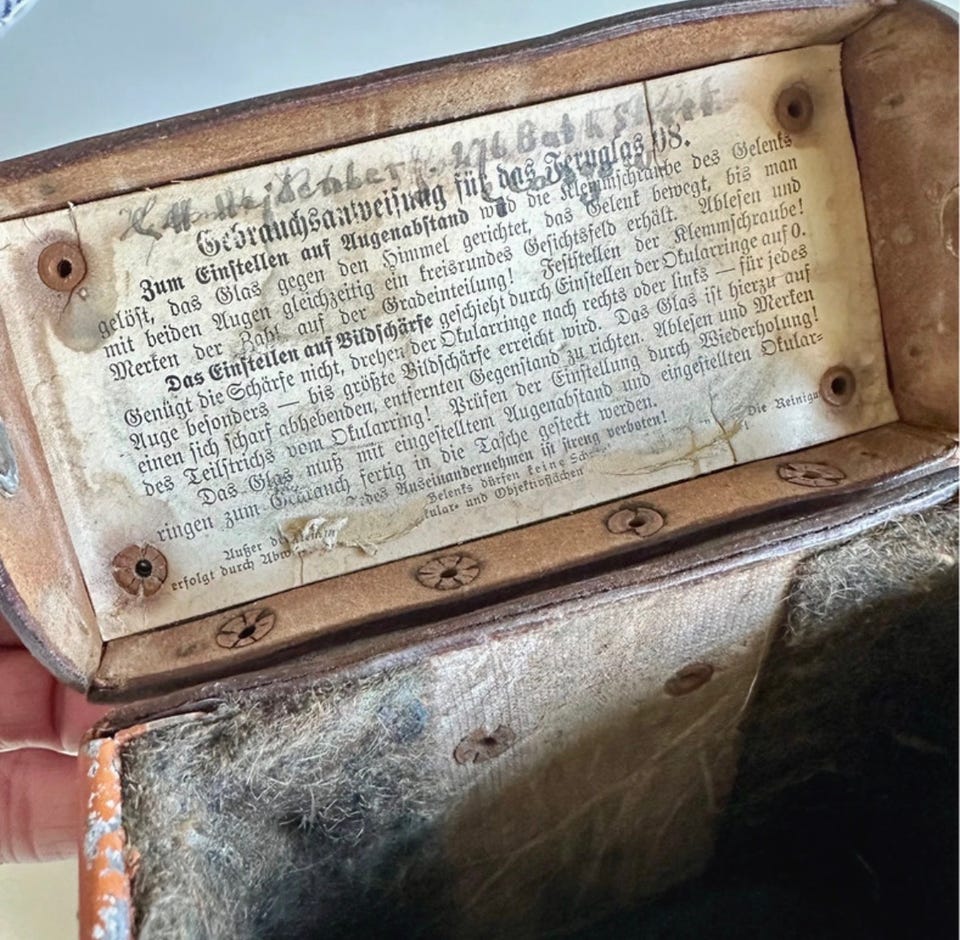 Gebrauchsanweisung für das Fernglas 08.
Zum Einstellen auf Augenabstand wird die Klemmschraube des Gelenks
gelöst, das Glas gegen den Himmel gerichtet, das Gelenk bewegt, bis man
mit beiden Augen gleichzeitig ein kreisrundes Gesichtsfeld erhält. Ablesen und
Merken der Zahl auf der Gradeinteilung! Feststellen der Klemmschraube!
Das Einstellen auf Bildschärfe geschieht durch Einstellen der Okularringe auf 0.
Genügt die Schärfe nicht, drehen der Okularringe nach rechts oder links — für jedes
Auge besonders — bis größte Bildschärfe erreicht wird. Das Glas ist hierzu auf
einen sich scharf abhebenden, entfernten Gegenstand zu richten. Ablesen und Merken
des Teilstrichs vom Okularring! Prüfen der Einstellung durch Wiederholung!
Das Glas muß mit eingestelltem Augenabstand und eingestellten Okular-
ringen zum Gebrauch fertig in die Tasche gesteckt werden.
Jedes Auseinandernehmen ist streng verboten!
Außer der Gelenks dürfen keine Die
erfolgt durch und Objektivflächen